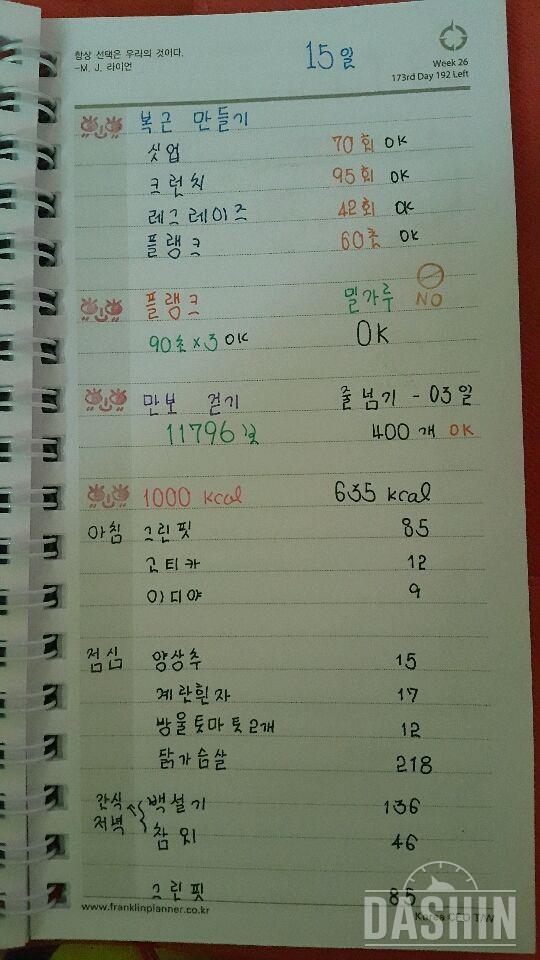 항상 선택은 우리의 것이다.
-M. J. 라이언
15일
Week 26
173rd Day 192 Left
복근 만들기
싯업 70회 OK
크런치 95회 OK
레그레이즈 42회 OK
플랭크 60초 OK
플랭크 밀가루 NO
90초×3 OK OK
만보 걷기 줄넘기 - 03일
11796 400개 OK
1000 kcal 635 kcal
아침 그린핏 85
고티카 12
이디야 9
점심 양상추 15
계란흰자 17
방울톳마톳2개 12
닭가슴살 218
간식 백설기 136
저녁 참외 46
그린핏 85
www.franklinplanner.co.kr
Korea CEO T/W
DASHIN